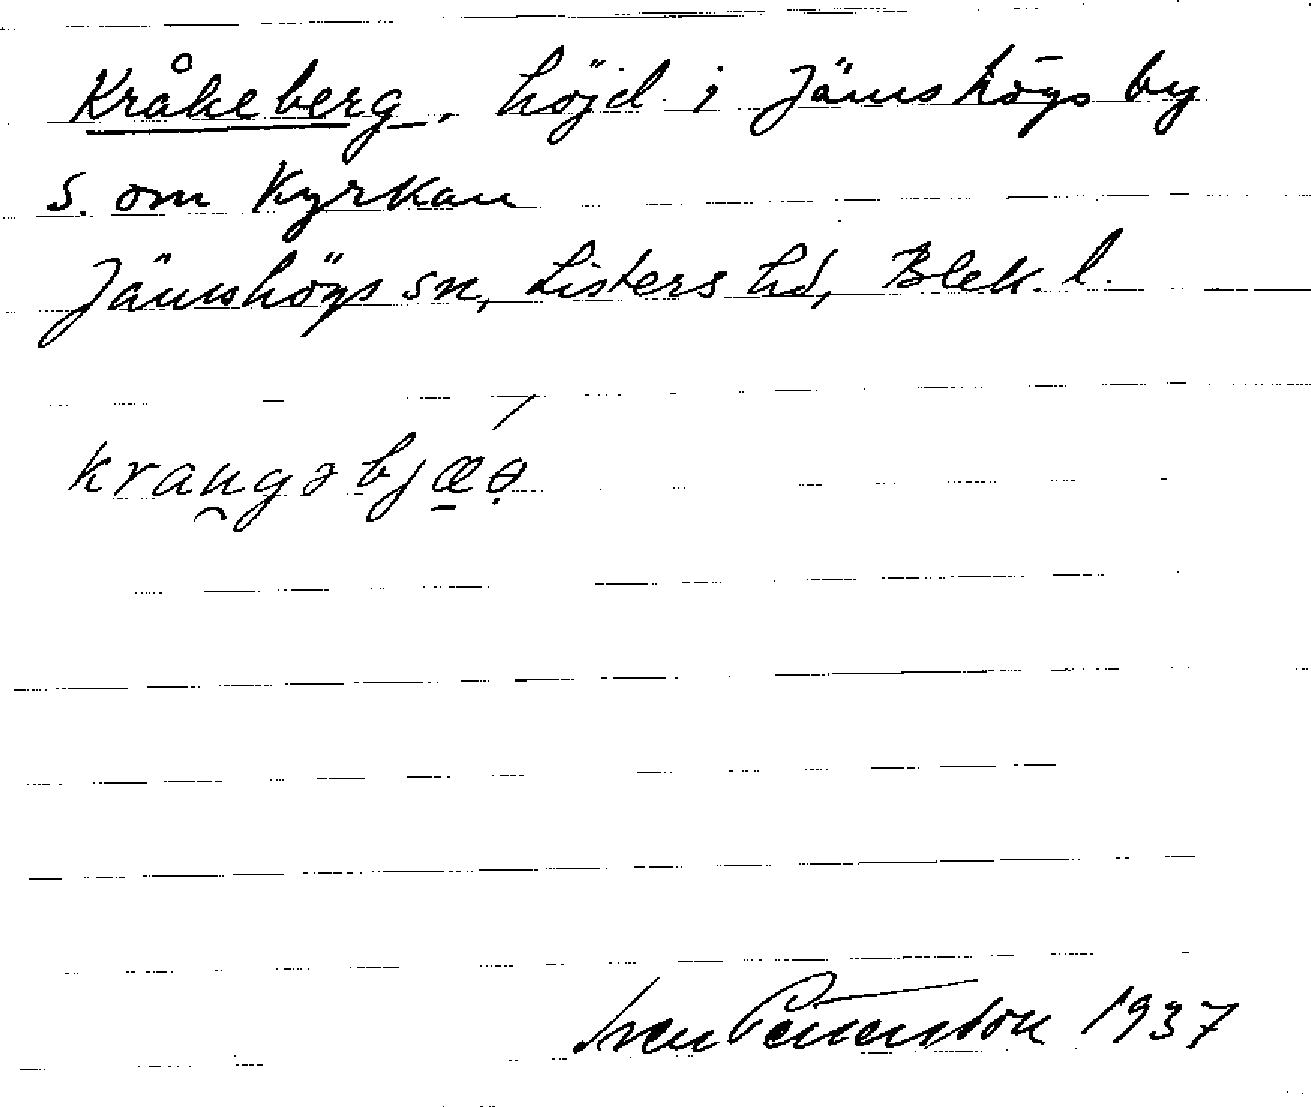 Kråkeberg, höjd i Jämshögs by
s. om Kyrkan
Jämshögs sn, Listers hd, Blek. l.
kraugəbjæ
Sven 1937